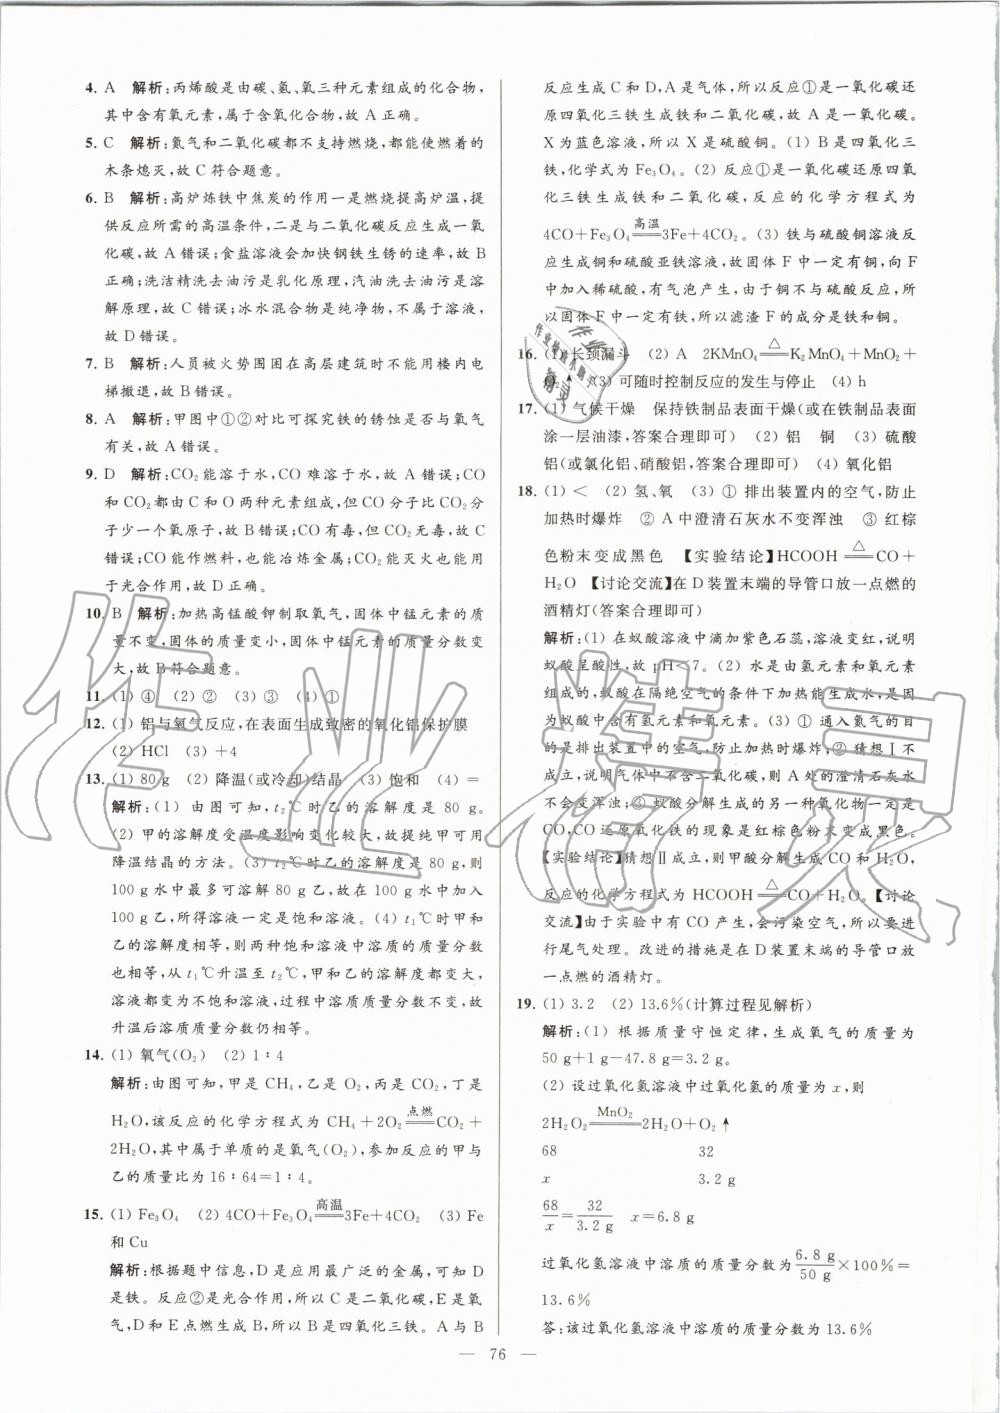 4. A 解析:丙烯酸是由碳、氢、氧三种元素组成的化合物,
其中含有氧元素,属于含氧化合物,故 A 正确。
5. C 解析:氮气和二氧化碳都不支持燃烧,都能使燃着的
木条熄灭,故 C 符合题意。
6. B 解析:高炉炼铁中焦炭的作用一是燃烧提高炉温,提
供反应所需的高温条件,二是与二氧化碳反应生成一氧
化碳,故 A 错误;食盐溶液会加快钢铁生锈的速率,故 B
正确;洗洁精洗去油污是乳化原理,汽油洗去油污是溶
解原理,故 C 错误;冰水混合物是纯净物,不属于溶液,
故 D 错误。
7. B 解析:人员被火势围困在高层建筑时不能用楼内电
梯撤退,故 B 错误。
8. A 解析:甲图中①②对比可探究铁的锈蚀是否与氧气
有关,故 A 错误。
9. D 解析:CO₂能溶于水,CO 难溶于水,故 A 错误;CO
和 CO₂都由 C 和 O 两种元素组成,但 CO 分子比 CO₂分
子少一个氧原子,故 B 错误;CO 有毒,但 CO₂无毒,故 C
错误;CO 能作燃料,也能冶炼金属;CO₂能灭火也能用
于光合作用,故 D 正确。
10. B 解析:加热高锰酸钾制取氧气,固体中锰元素的质
量不变,固体的质量变小,固体中锰元素的质量分数变
大,故 B 符合题意。
11. (1) ④ (2) ② (3) ③ (4) ①
12. (1) 铝与氧气反应,在表面生成致密的氧化铝保护膜
(2) HCl (3) +4
13. (1) 80 g (2) 降温(或冷却)结晶 (3) 饱和 (4) =
解析:(1) 由图可知,t₂℃时乙的溶解度是 80 g。
(2) 甲的溶解度受温度影响变化较大,故提纯甲可用
降温结晶的方法。(3) t₂℃时乙的溶解度是 80 g,则
100 g 水中最多可溶解 80 g 乙,故在 100 g 水中加入
100 g 乙,所得溶液一定是饱和溶液。(4) t₁℃时甲和
乙的溶解度相等,则两种饱和溶液中溶质的质量分数
也相等,从 t₁℃升温至 t₂℃,甲和乙的溶解度都变大,
溶液都变为不饱和溶液,过程中溶质质量分数不变,故
升温后溶质质量分数仍相等。
14. (1) 氧气(O₂) (2) 1∶4
解析:由图可知,甲是 CH₄,乙是 O₂,丙是 CO₂,丁是
H₂O,该反应的化学方程式为 CH₄+2O₂ 点燃 ═ CO₂+
2H₂O,其中属于单质的是氧气(O₂),参加反应的甲与
乙的质量比为 16∶64=1∶4。
15. (1) Fe₃O₄ (2) 4CO+Fe₃O₄ 高温 ═ 3Fe+4CO₂ (3) Fe
和 Cu
解析:根据题中信息,D 是应用最广泛的金属,可知 D
是铁。反应②是光合作用,所以 C 是二氧化碳,E 是氧
气,D 和 E 点燃生成 B,所以 B 是四氧化三铁。A 与 B
反应生成 C 和 D,A 是气体,所以反应①是一氧化碳还
原四氧化三铁生成铁和二氧化碳,故 A 是一氧化碳。
X 为蓝色溶液,所以 X 是硫酸铜。(1) B 是四氧化三
铁,化学式为 Fe₃O₄。(2) 反应①是一氧化碳还原四氧
化三铁生成铁和二氧化碳,反应的化学方程式为
4CO+Fe₃O₄ 高温 ═ 3Fe+4CO₂。(3) 铁与硫酸铜溶液反
应生成铜和硫酸亚铁溶液,故固体 F 中一定有铜,向 F
中加入稀硫酸,有气泡产生,由于铜不与硫酸反应,所
以固体 F 中一定有铁,所以滤渣 F 的成分是铁和铜。
16. (1) 长颈漏斗 (2) A 2KMnO₄ △ ═ K₂MnO₄+MnO₂+
O₂↑ (3) 可随时控制反应的发生与停止 (4) h
17. (1) 气候干燥 保持铁制品表面干燥(或在铁制品表面
涂一层油漆,答案合理即可) (2) 铝 铜 (3) 硫酸
铝(或氯化铝、硝酸铝,答案合理即可) (4) 氧化铝
18. (1) < (2) 氢、氧 (3) ① 排出装置内的空气,防止
加热时爆炸 ② A 中澄清石灰水不变浑浊 ③ 红棕
色粉末变成黑色 【实验结论】HCOOH △ ═ CO+
H₂O 【讨论交流】在 D 装置末端的导管口放一点燃的
酒精灯(答案合理即可)
解析:(1) 在蚁酸溶液中滴加紫色石蕊,溶液变红,说明
蚁酸呈酸性,故 pH<7。(2) 水是由氢元素和氧元素
组成的,蚁酸在隔绝空气的条件下加热能生成水,是因
为蚁酸中含有氢元素和氧元素。(3) ① 通入氮气的目
的是排出装置中的空气,防止加热时爆炸;② 猜想Ⅰ不
成立,说明气体中不含二氧化碳,则 A 处的澄清石灰水
不会变浑浊;③ 蚁酸分解生成的另一种氧化物一定是
CO,CO 还原氧化铁的现象是红棕色粉末变成黑色。
【实验结论】猜想Ⅱ成立,则甲酸分解生成 CO 和 H₂O,
反应的化学方程式为 HCOOH △ ═ CO+H₂O。【讨论
交流】由于实验中有 CO 产生,会污染空气,所以要进
行尾气处理。改进的措施是在 D 装置末端的导管口放
一点燃的酒精灯。
19. (1) 3.2 (2) 13.6%(计算过程见解析)
解析:(1) 根据质量守恒定律,生成氧气的质量为
50 g+1 g-47.8 g=3.2 g。
(2) 设过氧化氢溶液中过氧化氢的质量为 x,则
2H₂O₂ MnO₂ ═ 2H₂O+O₂↑
68 32
x 3.2 g
68/x=32/3.2 g x=6.8 g
过氧化氢溶液中溶质的质量分数为 6.8 g/50 g×100%=
13.6%
答:该过氧化氢溶液中溶质的质量分数为 13.6%
— 76 —
作业精灵